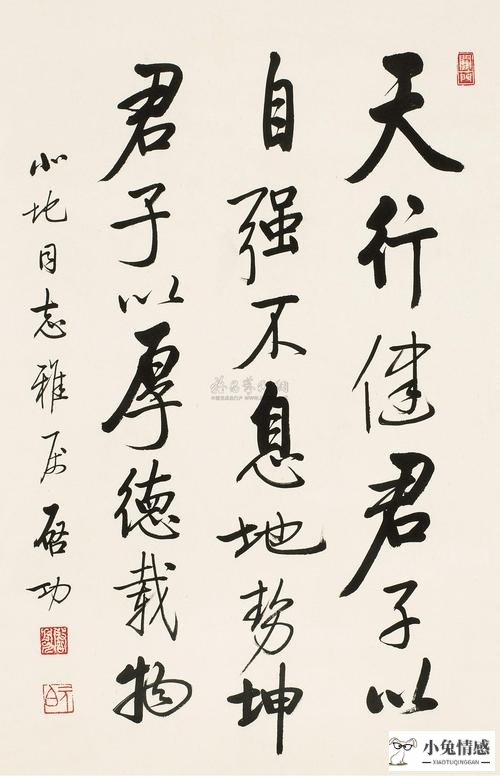 天行健君子以
自强不息地势坤
君子以厚德載物
地同志雅属 启功
小兔情感
XIAOTUQINGGAN